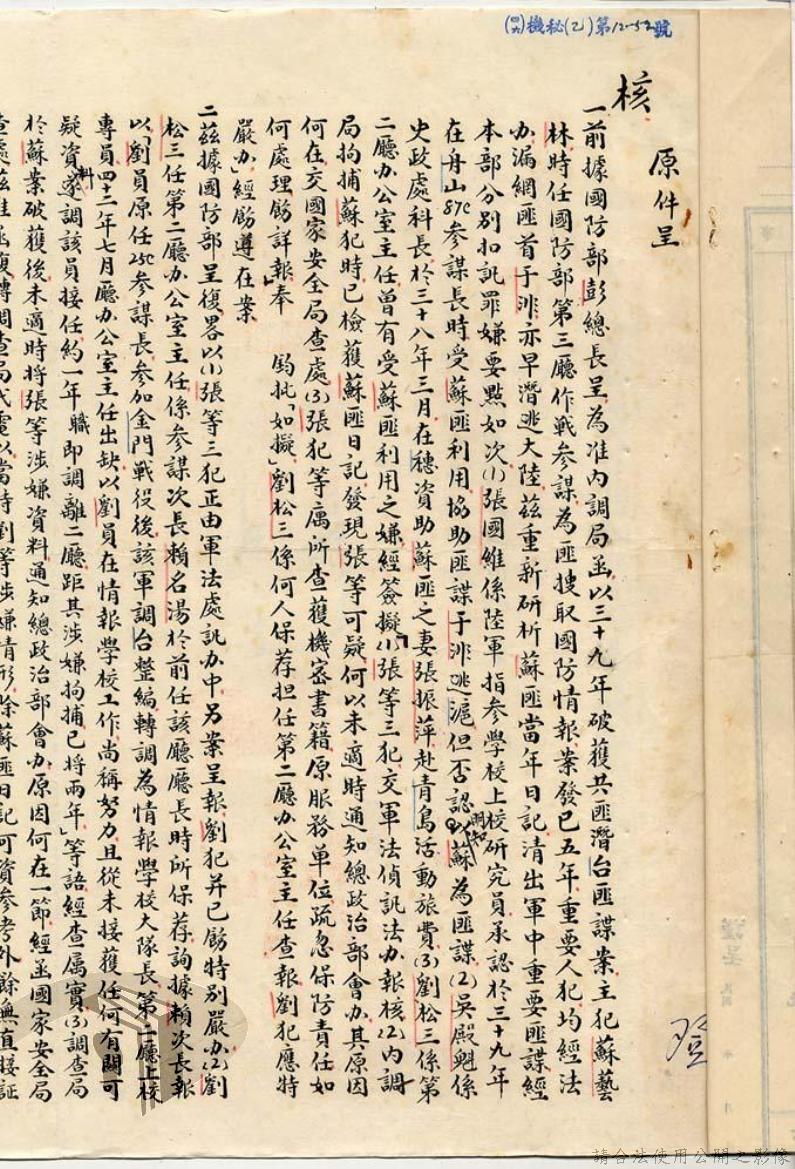 (四六)機秘(乙)第12-52號
核
原件呈
一前據國防部彭總長呈為准內調局函以三十九年破獲共匪潛台匪諜案主犯蘇藝
林時任國防部第三廳作戰參謀為匪搜取國防情報案發已五年重要人犯均經法
办漏網匪首于非亦早潛逃大陸茲重新研析蘇匪當年日記清出軍中重要匪諜經
本部分別扣訊罪嫌要點如次(1)張國維係陸軍指參學校上校研究員承認於三十九年
在舟山87C參謀長時受蘇匪利用協助匪諜于非逃滬但否認明知蘇為匪諜(2)吳殿魁係
史政處科長於三十八年三月在穗資助蘇匪之妻張振萍赴青島活動旅費(3)劉松三係第
二廳办公室主任曾有受蘇匪利用之嫌經簽擬「(1)張等三犯交軍法偵訊法办報核(2)內調
局拘捕蘇犯時已檢獲蘇匪日記發現張等可疑何以未適時通知總政治部會办其原因
何在交國家安全局查處(3)張犯等寓所查獲機密書籍原服務單位疏忽保防責任如
何處理飭詳報」奉 鈞批「如擬」劉松三係何人保荐担任第二廳办公室主任查報劉犯應特
嚴办」經飭遵在案
二茲據國防部呈復畧以(1)張等三犯正由軍法處訊办中另案呈報劉犯并已飭特別嚴办(2)劉
松三任第二廳办公室主任係參謀次長賴名湯於前任該廳廳長時所保荐詢據賴次長報
以「劉員原任25C參謀長參加金門戰役後該軍調台整編轉調為情報學校大隊長第二廳上校
專員四十二年七月廳办公室主任出缺以劉員在情報學校工作尚稱努力且從未接獲任何有關可
疑資料遂調該員接任約一年職即調離二廳距其涉嫌拘捕已將兩年」等語經查屬實(3)調查局
於蘇案破獲後未適時將張等涉嫌資料通知總政治部會办原因何在一節經函國家安全局
查處茲准函復轉調查局代電以當時劉等涉嫌情形除蘇匪日記可資參考外餘無直接証
請合法使用公開之影像